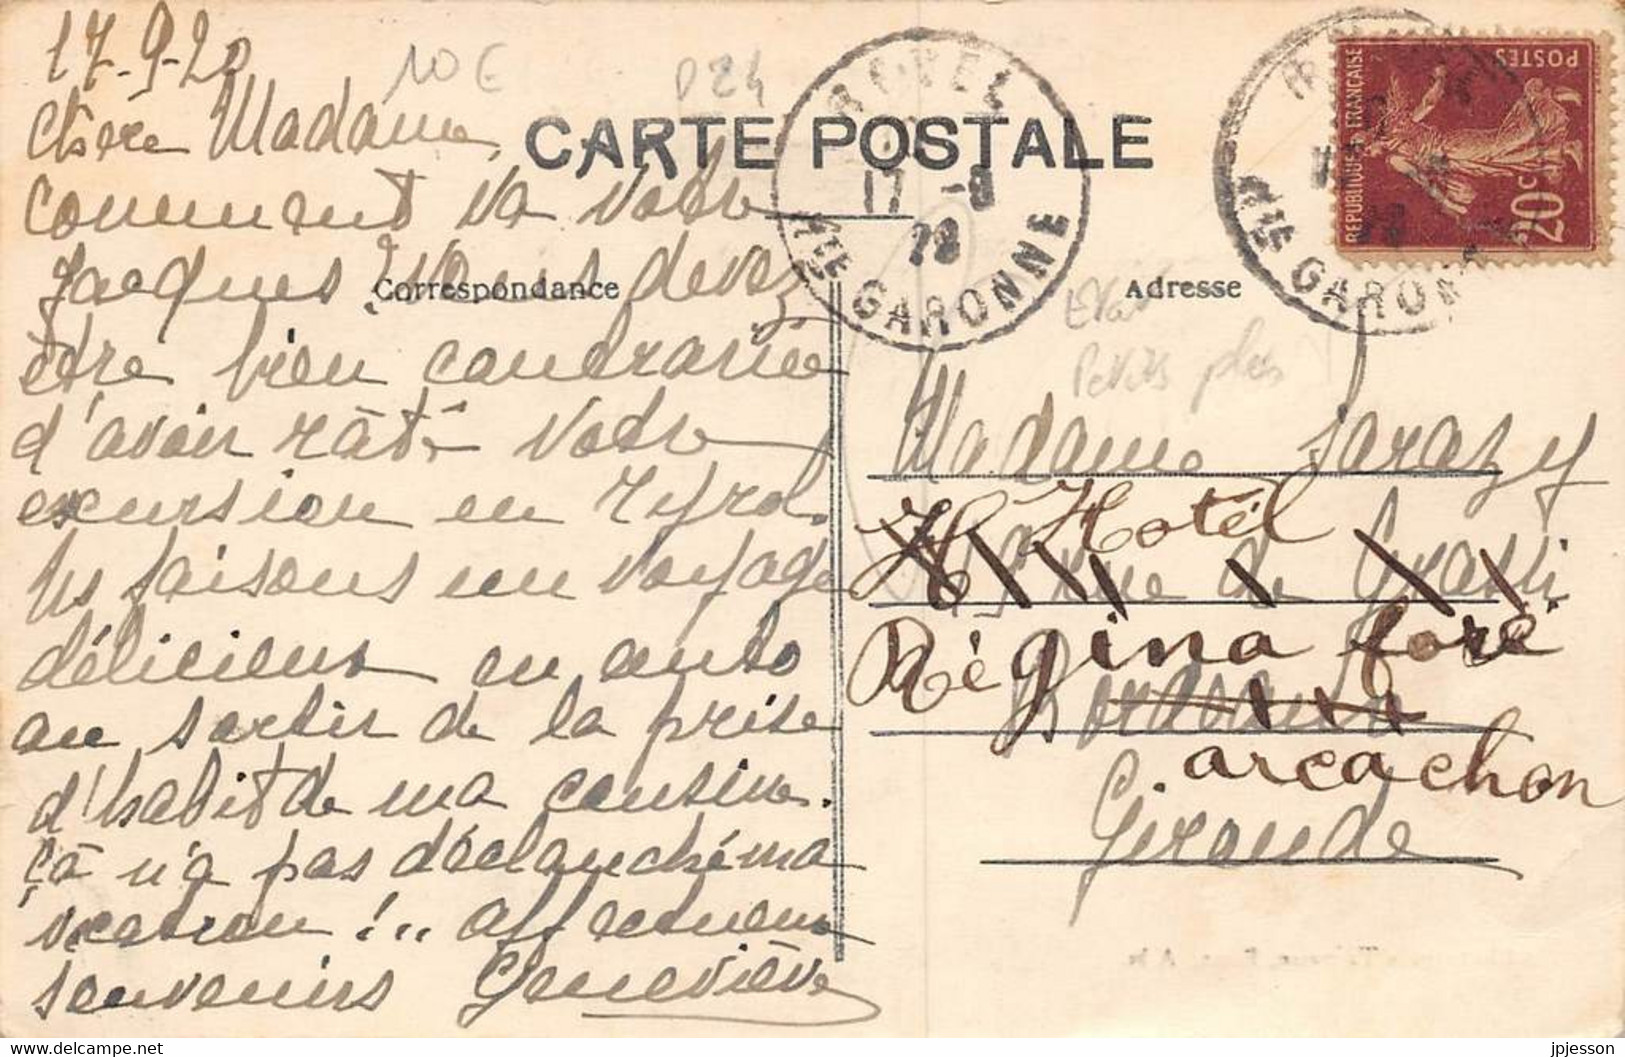 17-9-20
10€
D24
Chère Madame,
CARTE POSTALE
REVEL
17 -9
28
Hte GARONNE
Hte GARONNE
POSTES
REPUBLIQUE FRANÇAISE
20c
comment va votre
Jacques ? Vous devez
Correspondance
Adresse
être bien contrariée
Petits plis
d'avoir râté votre
Madame Sarazy
excursion en Tyrol.
Hotel
Ns faisons un voyage
rue de Grassi
délicieux en auto
Régina foré
au sortir de la prise
Bordeaux
arcachon
d'habit de ma cousine.
Gironde
çà n'a pas déclanché ma
vocation !.. affectueux
souvenirs Geneviève
www.delcampe.net
jpjesson